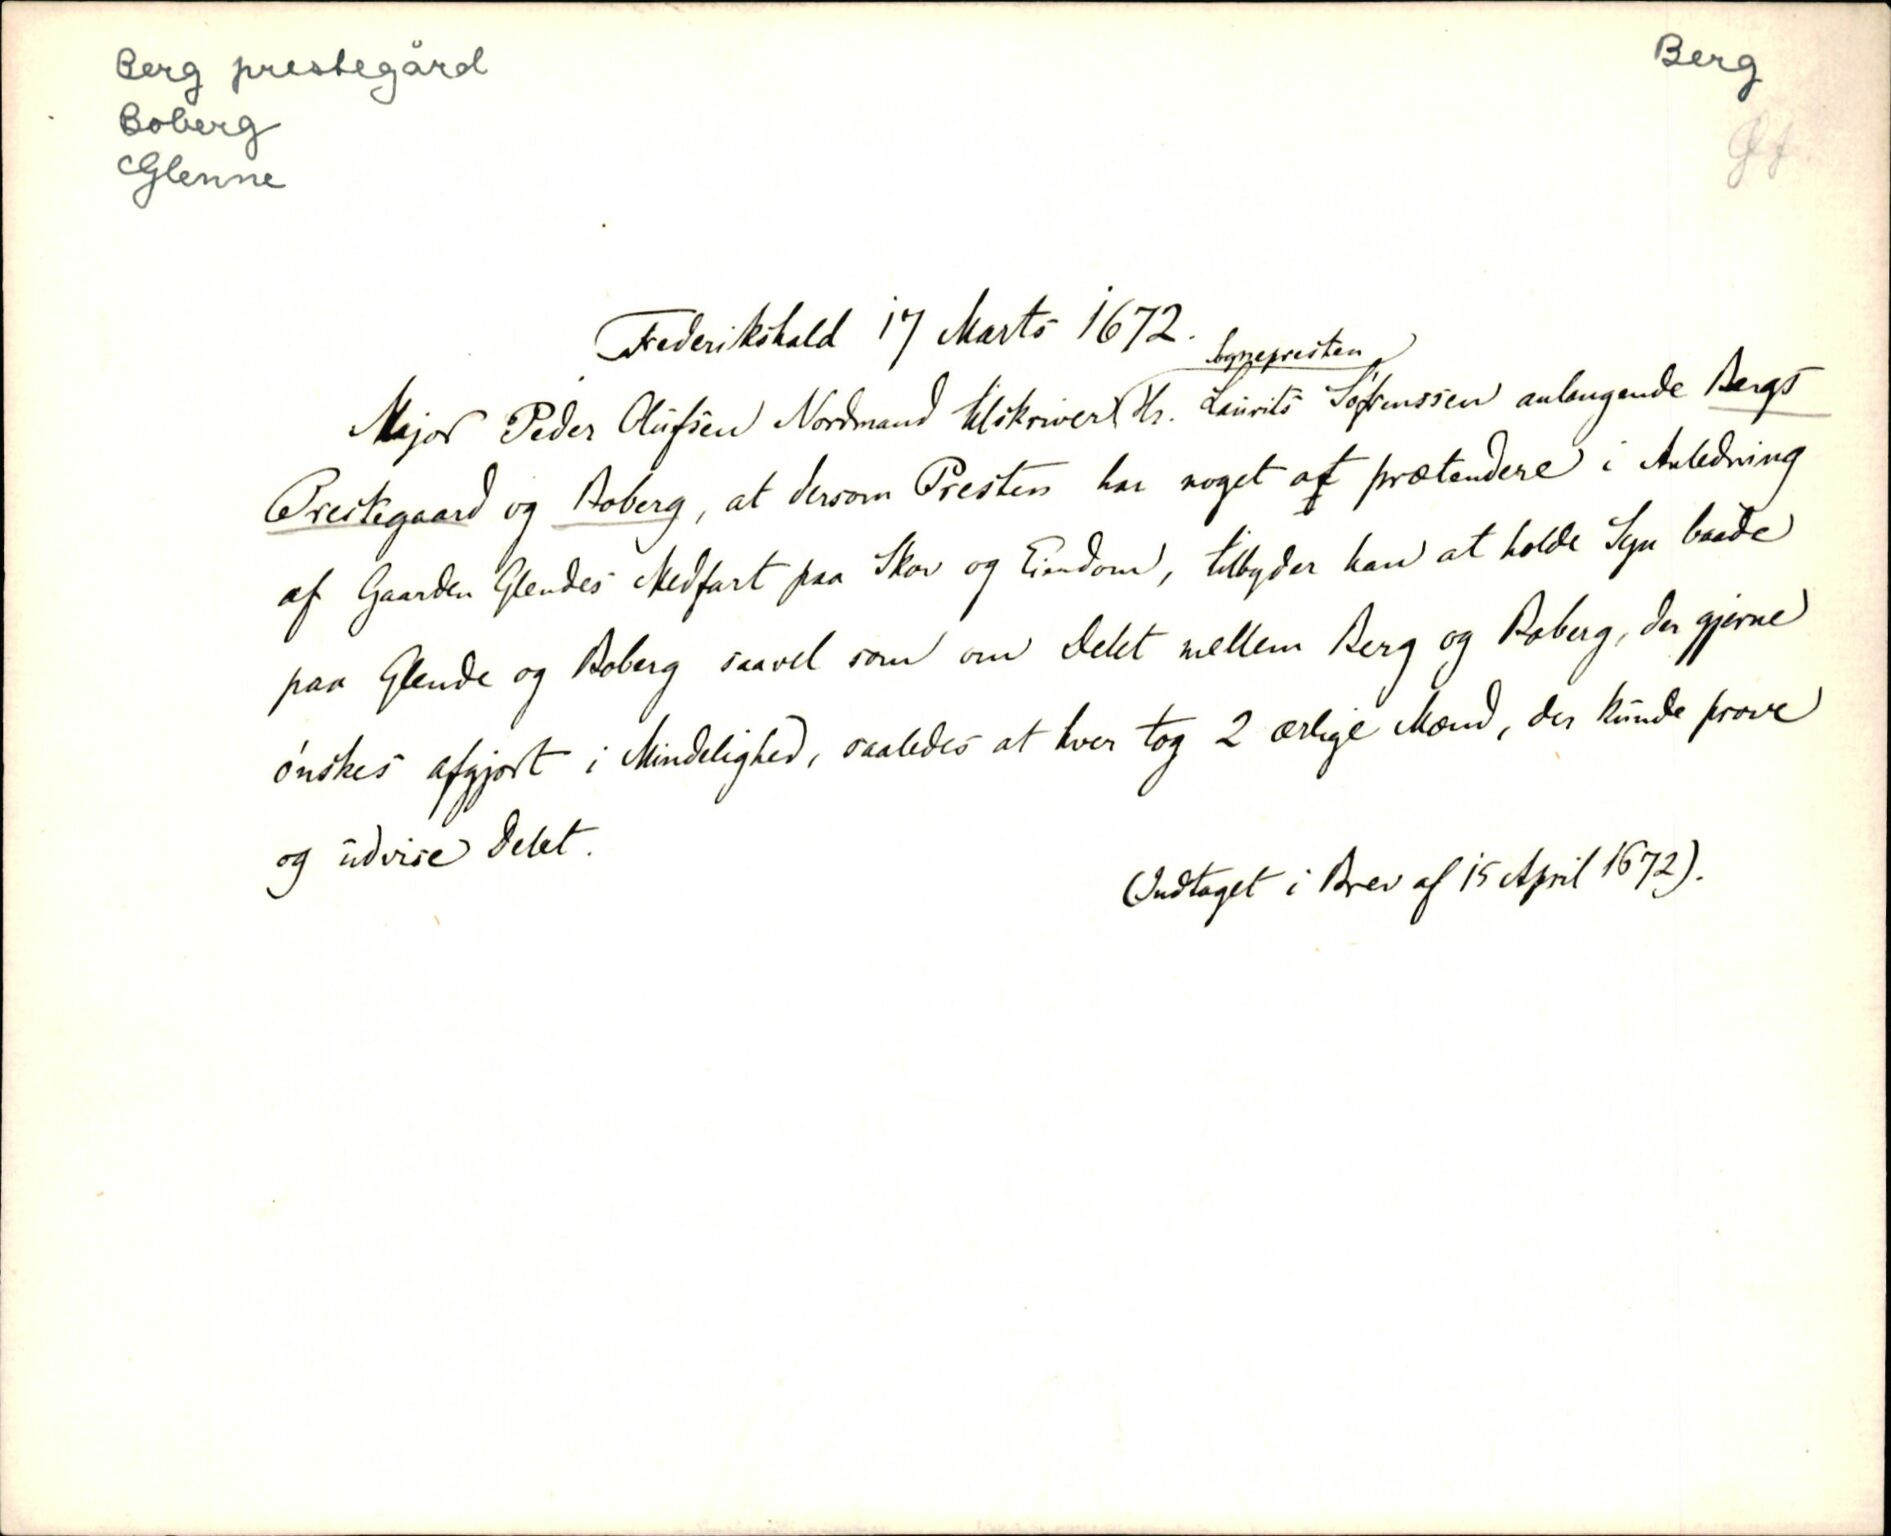 Berg prestegård
Boberg
Glenne
Berg
Øf.
Frederikshald 17 Marts 1672.
Sognepresten
Major Peder Olufsen Nordmand tilskriver Hr. Laurits Sörenssen anlangende Bergs
Prestegaard og Boberg, at dersom Presten har noget at prætendere i Anledning
af Gaarden Glendes Medfart paa Skov og Eiendom, tilbyder han at holde Syn baade
paa Glende og Boberg saavel som om Delet mellem Berg og Boberg, der gjerne
ónskes afgjort i Mindelighed, saaledes at hver tog 2 ærlige Mænd, der kunde prove
og udvise Delet.
(Indtaget i Brev af 15 April 1672).